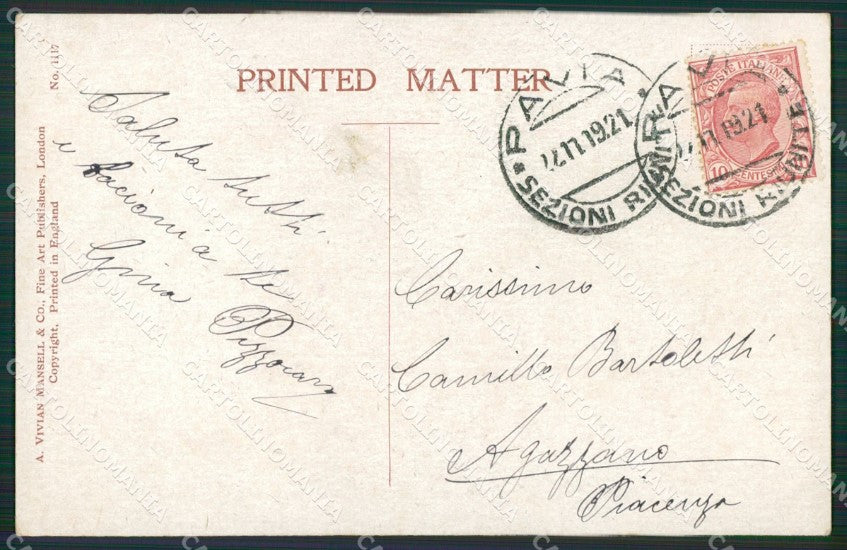 PRINTED MATTER
No. 1117
A. VIVIAN MANSELL & CO., Fine Art Publishers, London
Copyright, Printed in England
Saluta tutti
e bacioni a te
Gina
Carissimo
Camillo Bartoletti
Agazzano
Piacenza
PALIA
22.11.1921
* SEZIONI RIUNITE *
PALIA
22.11.1921
* SEZIONI RIUNITE *
POSTE ITALIANE
10 CENTESIMI
CARTOLINOMANIA